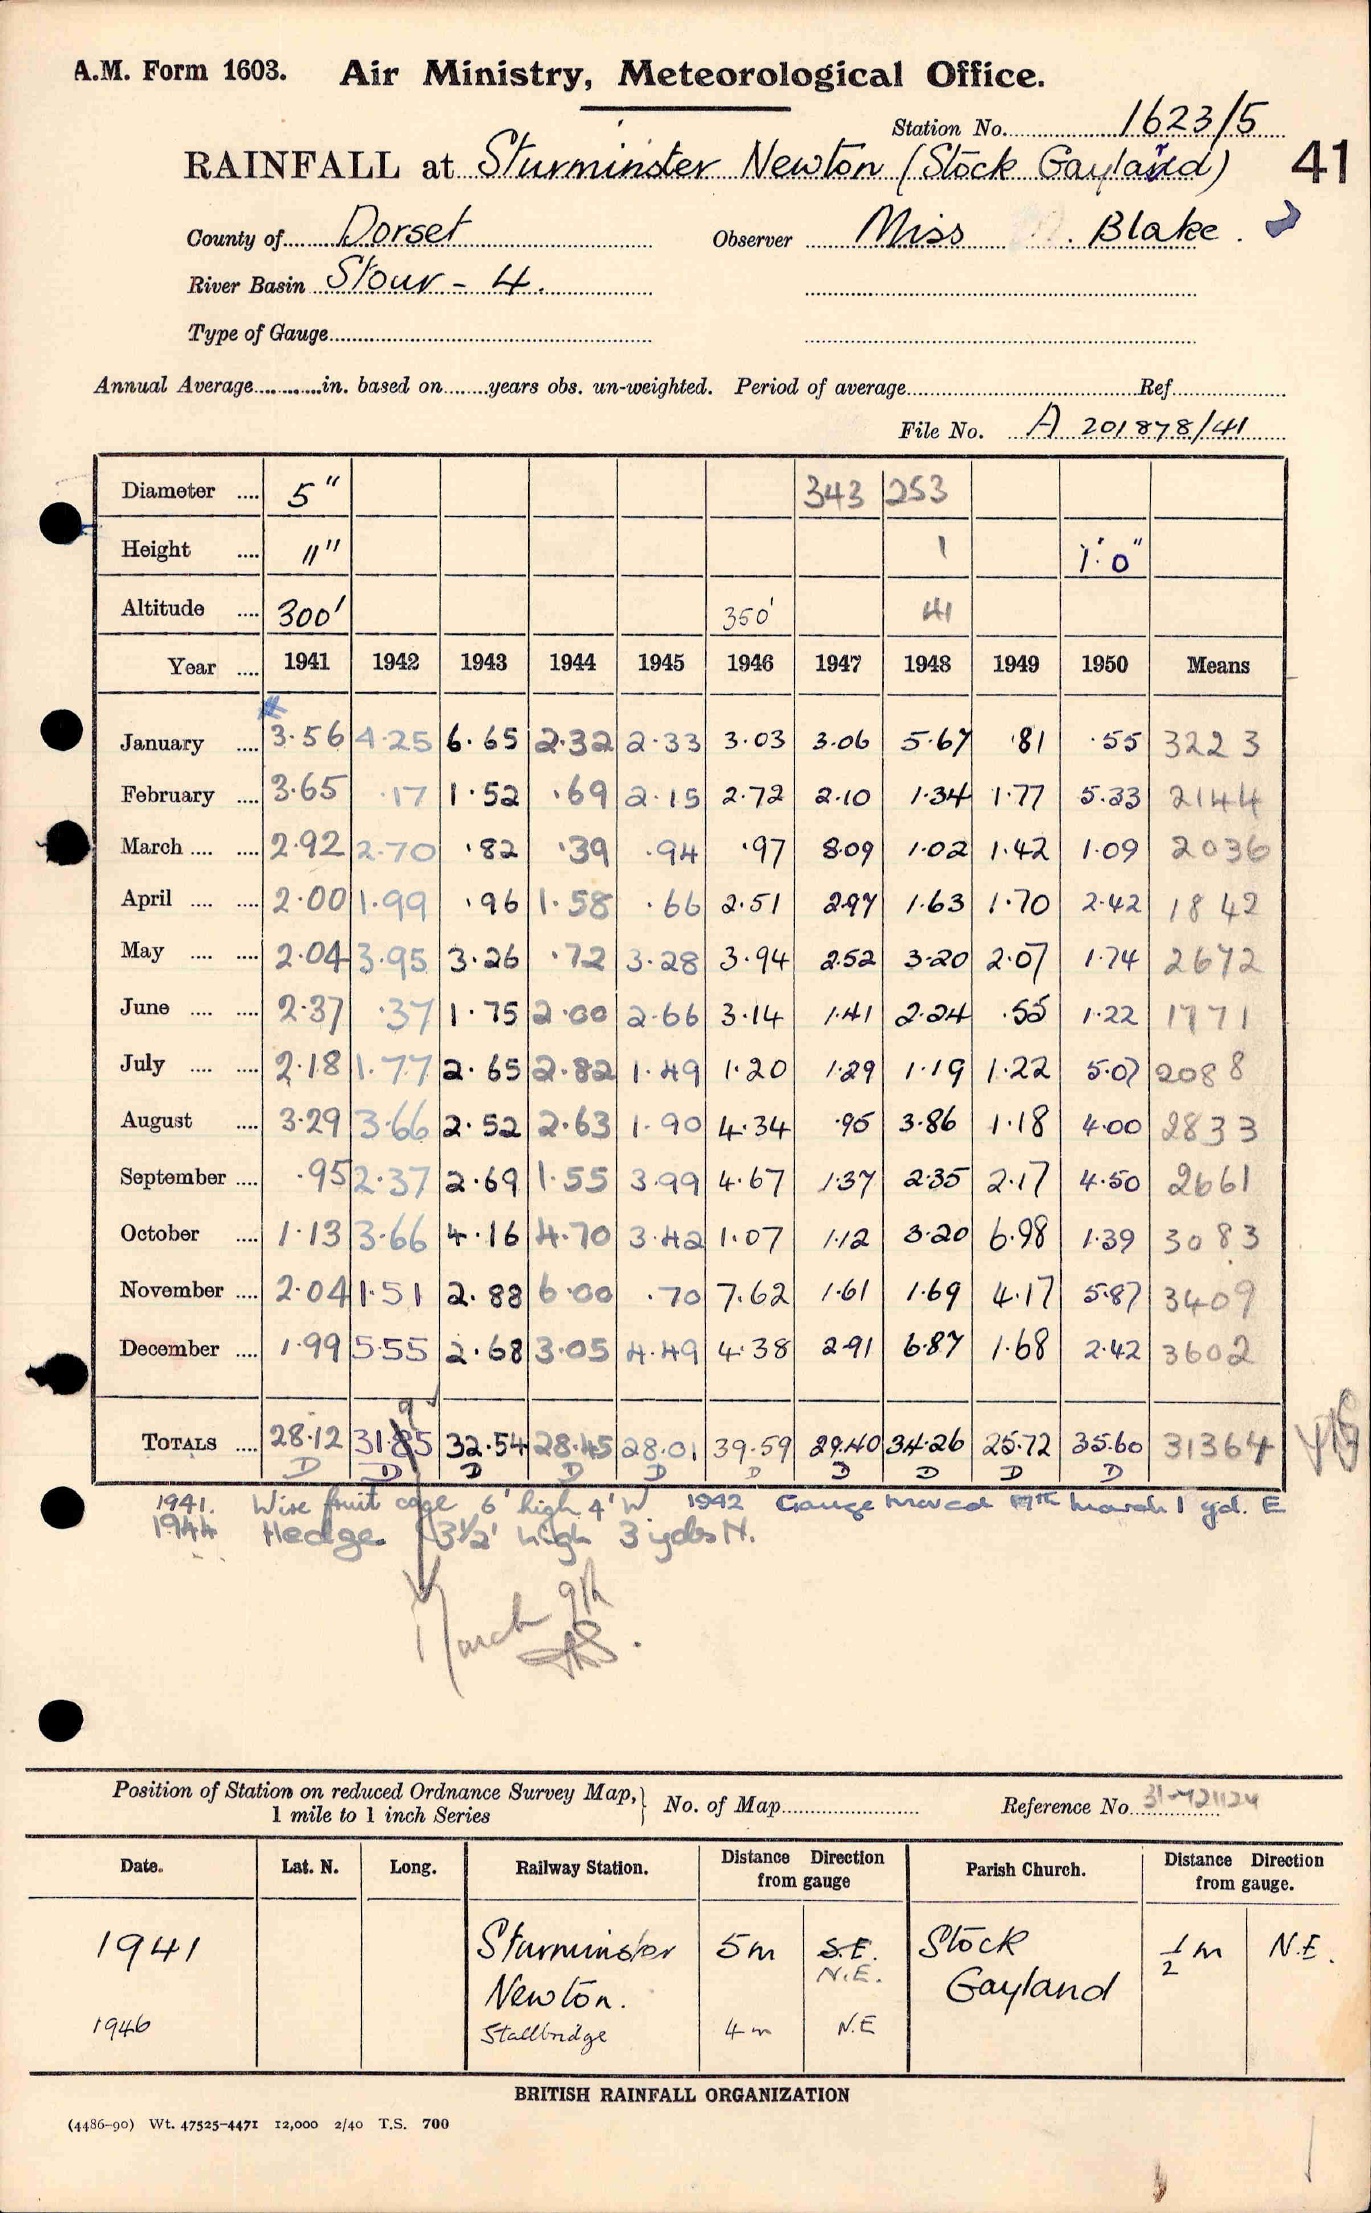 A.M. Form 1603. Air Ministry, Meteorological Office.
Station No. 1623/5
RAINFALL at Sturminster Newton (Stock Gayland) 41
County of Dorset Observer Miss Blake.
River Basin Stour - 4.
Type of Gauge
Annual Average in. based on years obs. un-weighted. Period of average Ref
File No. A 201878/41
Diameter 5" 343 253
Height 11" 1 1' 0"
Altitude 300' 350' 41
Year 1941 1942 1943 1944 1945 1946 1947 1948 1949 1950 Means
January 3.56 4.25 6.65 2.32 2.33 3.03 3.06 5.67 .81 .55 3223
February 3.65 .17 1.52 .69 2.15 2.72 2.10 1.34 1.77 5.33 2144
March 2.92 2.70 .82 .39 .94 .97 8.09 1.02 1.42 1.09 2036
April 2.00 1.99 .96 1.58 .66 2.51 2.97 1.63 1.70 2.42 1842
May 2.04 3.95 3.26 .72 3.28 3.94 2.52 3.20 2.07 1.74 2672
June 2.37 .37 1.75 2.00 2.66 3.14 1.41 2.24 .55 1.22 1771
July 2.18 1.77 2.65 2.82 1.49 1.20 1.29 1.19 1.22 5.07 2088
August 3.29 3.66 2.52 2.63 1.90 4.34 .95 3.86 1.18 4.00 2833
September .95 2.37 2.69 1.55 3.99 4.67 1.37 2.35 2.17 4.50 2661
October 1.13 3.66 4.16 4.70 3.42 1.07 1.12 3.20 6.98 1.39 3083
November 2.04 1.51 2.88 6.00 .70 7.62 1.61 1.69 4.17 5.87 3409
December 1.99 5.55 2.68 3.05 4.49 4.38 2.91 6.87 1.68 2.42 3602
TOTALS 28.12 31.85 32.54 28.45 28.01 39.59 29.40 34.26 25.72 35.60 31364
D D D D D D D D D D
1941. Wire fruit cage 6' high 4' W 1942 Gauge moved March 1 yd. E
1944 Hedge 3½' high 3 yds N.
March 9th
Position of Station on reduced Ordnance Survey Map,
1 mile to 1 inch Series No. of Map Reference No. 31-721124
Date. Lat. N. Long. Railway Station. Distance Direction from gauge Parish Church. Distance Direction from gauge.
1941 Sturminster Newton. 5m S.E. N.E. Stock Gayland ½ m N.E.
1946 Stallbridge 4 m N.E
BRITISH RAINFALL ORGANIZATION
(4486-90) Wt. 47525-4471 12,000 2/40 T.S. 700